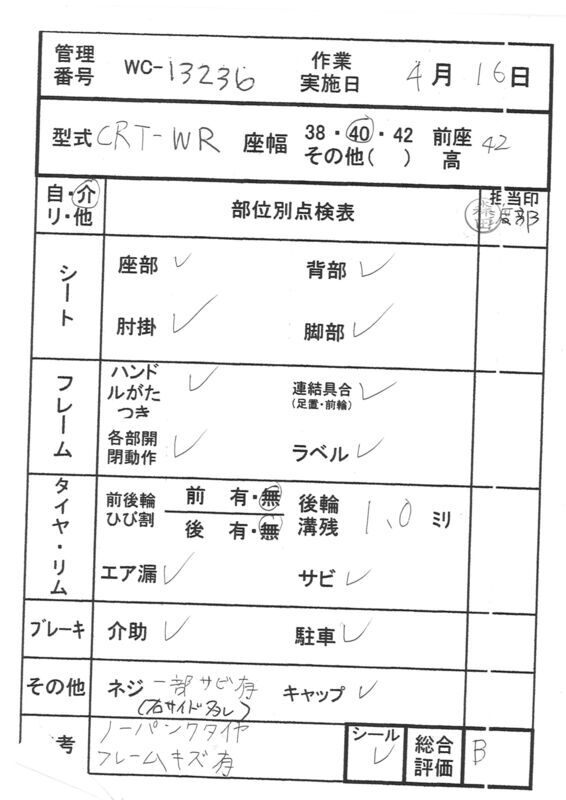 管理番号 WC-13236 作業実施日 4月16日
型式 CRT-WR 座幅 38・40・42 その他( ) 前座高 42
自・介
リ・他
部位別点検表
担当印
シート
座部 ✓ 背部 ✓
肘掛 ✓ 脚部 ✓
フレーム
ハンドルがたつき ✓ 連結具合 ✓
(足置・前輪)
各部開閉動作 ✓ ラベル ✓
タイヤ・リム
前後輪ひび割 前 有・無
後 有・無
後輪溝残 1.0 ミリ
エア漏 ✓ サビ ✓
ブレーキ 介助 ✓ 駐車 ✓
その他 ネジ 一部サビ有 キャップ ✓
考 ノーパンクタイヤ
フレームキズ有
シール ✓ 総合評価 B